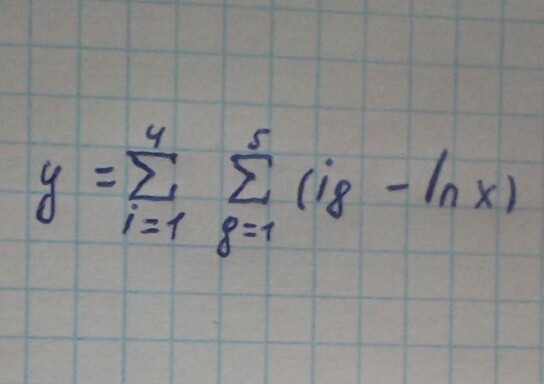 y = \sum_{i=1}^{4} \sum_{g=1}^{5} (ig - ln x)